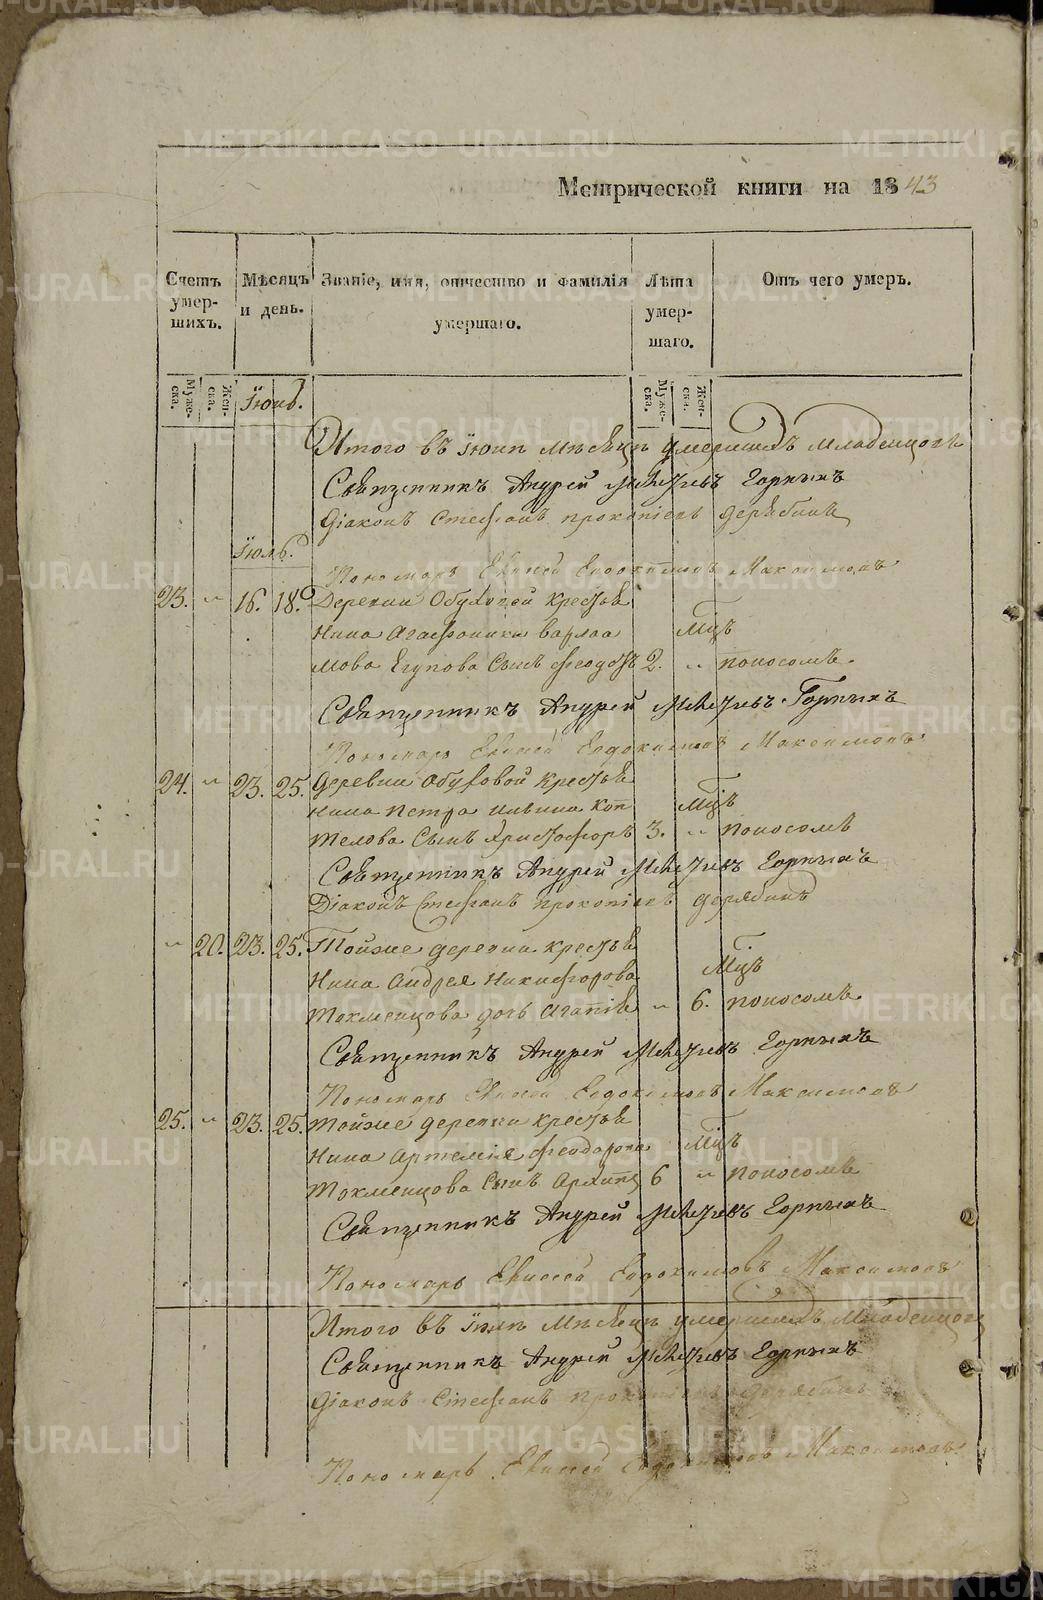 Метрической книги на 1843
Счетъ умер- шихъ.
Мѣсяцъ и день.
Званіе, имя, отчество и фамилія умершаго.
Лѣта умер- шаго.
Отъ чего умеръ.
Муже- ска.
Жен- ска.
Муже- ска.
Жен- ска.
Іюнь.
Итого въ Іюнѣ мѣсяцѣ умершихъ младенцовъ
Священникъ Андрей Горныхъ
Діаконъ Стефанъ Прокопіевъ Дерябинъ
Іюль.
Пономарь Елисей Евдокимовъ Максимовъ
23. " 16. 18. Деревни Обуховой крестья
нина Агафоника Варлаа
мѣц
мова Егупова Сынъ Феодоръ 2. " поносомъ.
Священникъ Андрей Горныхъ
Пономарь Елисей Евдокимовъ Максимовъ
24. " 23. 25. Деревни Обуховой крестья
нина Петра Ильина Коп
мѣц
телова Сынъ Христофоръ 3. " поносомъ
Священникъ Андрей Горныхъ
Діаконъ Стефанъ Прокопіевъ Дерябинъ
" 20. 23. 25. Тойже деревни крестья
нина Андрея Никифорова
мѣц
Токменцова дочь Агапія " 6. поносомъ
Священникъ Андрей Горныхъ
Пономарь Елисей Евдокимовъ Максимовъ
25. " 23. 25. Тойже деревни крестья
нина Артемія Феодорова
мѣц
Токменцова Сынъ Архипъ 6 " поносомъ
Священникъ Андрей Горныхъ
Пономарь Елисей Евдокимовъ Максимовъ
Итого въ Іюлѣ мѣсяцѣ умершихъ младенцовъ
Священникъ Андрей Горныхъ
Діаконъ Стефанъ Прокопіевъ Дерябинъ
Пономарь Елисей Евдокимовъ Максимовъ
METRIKI.GASO-URAL.RU